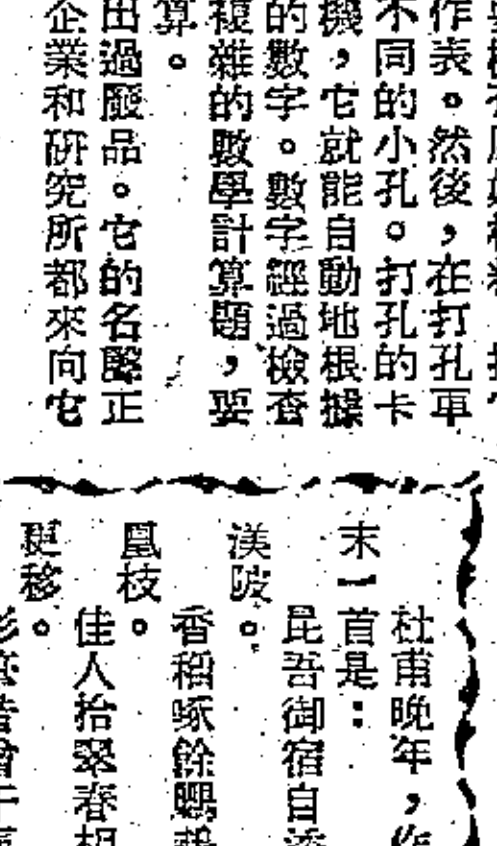 作表。然後,在打孔車
不同的小孔。打孔的卡
機,它就能自動地根據
的數字。數字經過檢查
複雜的數學計算題,要
算。
出過廢品。它的名聲正
企業和研究所都來向它
杜甫晚年,作
末一首是:
昆吾御宿自
渼陂。
香稻啄餘鸚鵡
凰枝。
佳人拾翠春相
更移。